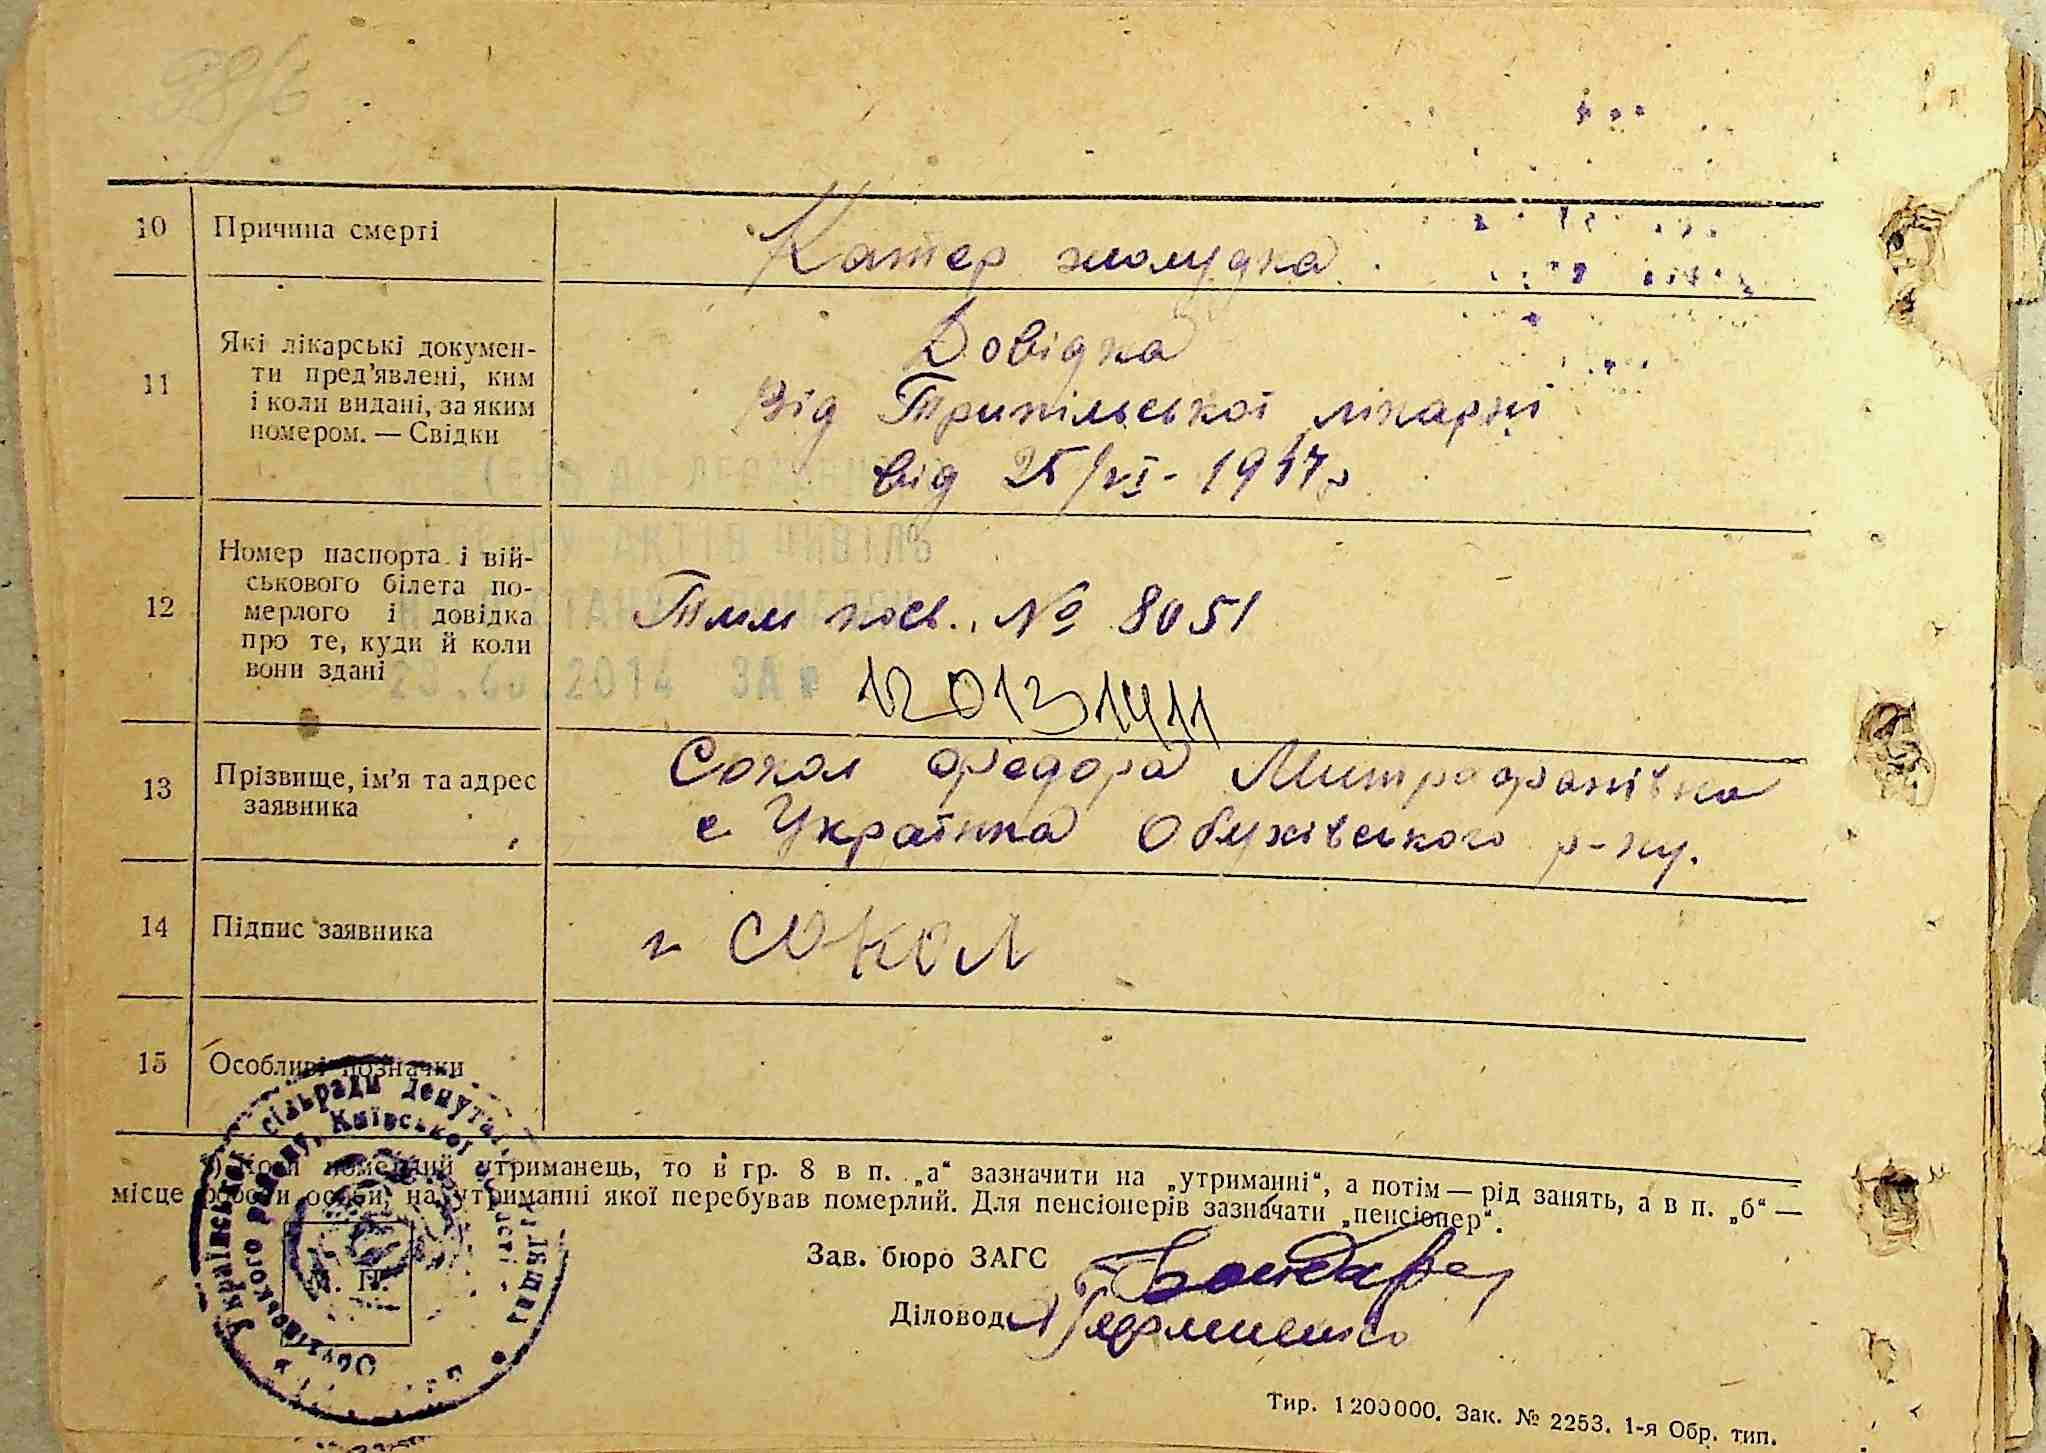 38/6
10 Причина смерті Катер жолудка
11 Які лікарські докумен-
ти пред'явлені, ким
і коли видані, за яким
номером. — Свідки
Довідка
від Трипільської лікарні
від 25/VI - 1947 р
12 Номер паспорта і вій-
ськового білета по-
мерлого і довідка
про те, куди й коли
вони здані
РЕЄСТРУ АКТІВ ЦИВІЛЬ
2014 ЗА №
Тим посв. № 8051
12013 1411
13 Прізвище, ім'я та адрес
заявника
Сокол Федора Митрофанівна
с Українка Обухівського р-ну.
14 Підпис заявника г СОКОЛ
15 Особливі позначки
Української сільради депутатів
Обухівського району, Київської області
Коли померлий утриманець, то в гр. 8 в п. „а“ зазначити на „утриманні“, а потім — рід занять, а в п. „б“ —
місце роботи особи, на утриманні якої перебував померлий. Для пенсіонерів зазначати „пенсіонер“.
Зав. бюро ЗАГС
Діловод
Тир. 1200000. Зак. № 2253. 1-я Обр. тип.